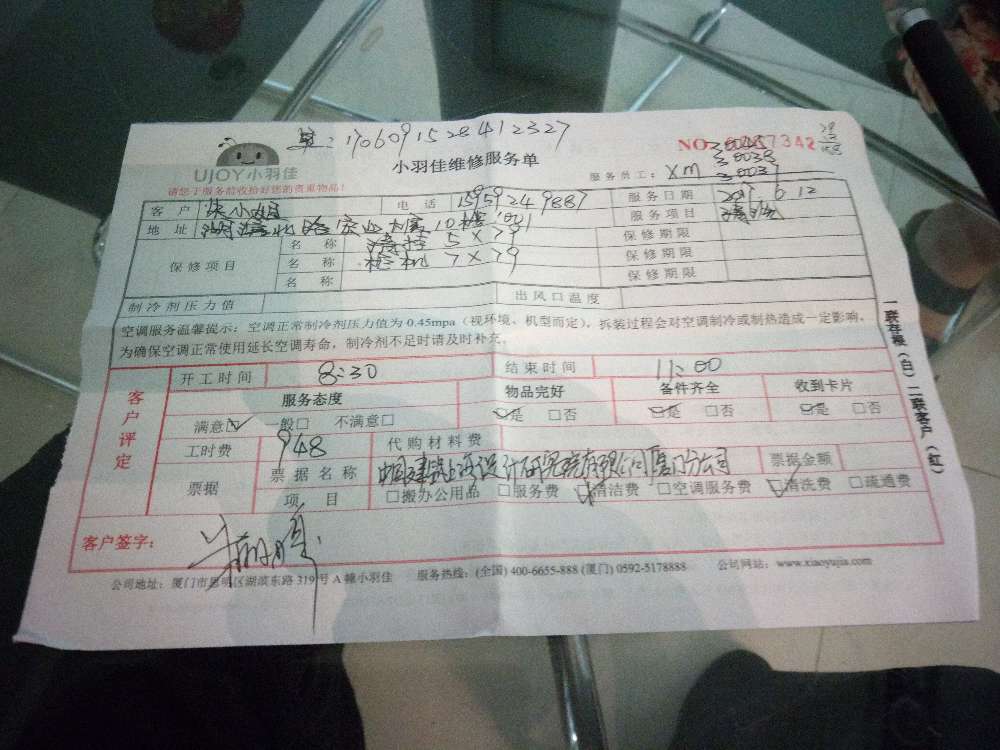 单:170609152841 2327
UJOY小羽佳
小羽佳维修服务单
NO 7342
请您于服务前收拾好您的贵重物品!
服务员工: XM 30038 30037
客户 小姐 电话 15959249887 服务日期 2017 6 12
地址 湖滨北路 大厦10楼 服务项目 清洗
保修项目 名称 5×79 保修期限
名称 柜机 7×79 保修期限
名称 保修期限
制冷剂压力值 出风口温度
空调服务温馨提示:空调正常制冷剂压力值为0.45mpa(视环境、机型而定),拆装过程会对空调制冷或制热造成一定影响,
为确保空调正常使用延长空调寿命,制冷剂不足时请及时补充。
客户评定 开工时间 8:30 结束时间 11:00
服务态度 物品完好 备件齐全 收到卡片
满意□ 一般□ 不满意□ □是 □否 □是 □否 □是 □否
工时费 948 代购材料费
票据 票据名称 中国建筑上海设计研究院有限公司厦门分公司 票据金额
项目 □搬办公用品 □服务费 □清洁费 □空调服务费 □清洗费 □疏通费
客户签字:
公司地址:厦门市思明区湖滨东路319号A幢小羽佳 服务热线:(全国) 400-6655-888 (厦门) 0592-5178888 公司网站:www.xiaoyujia.com
一联存根(白)二联客户(红)